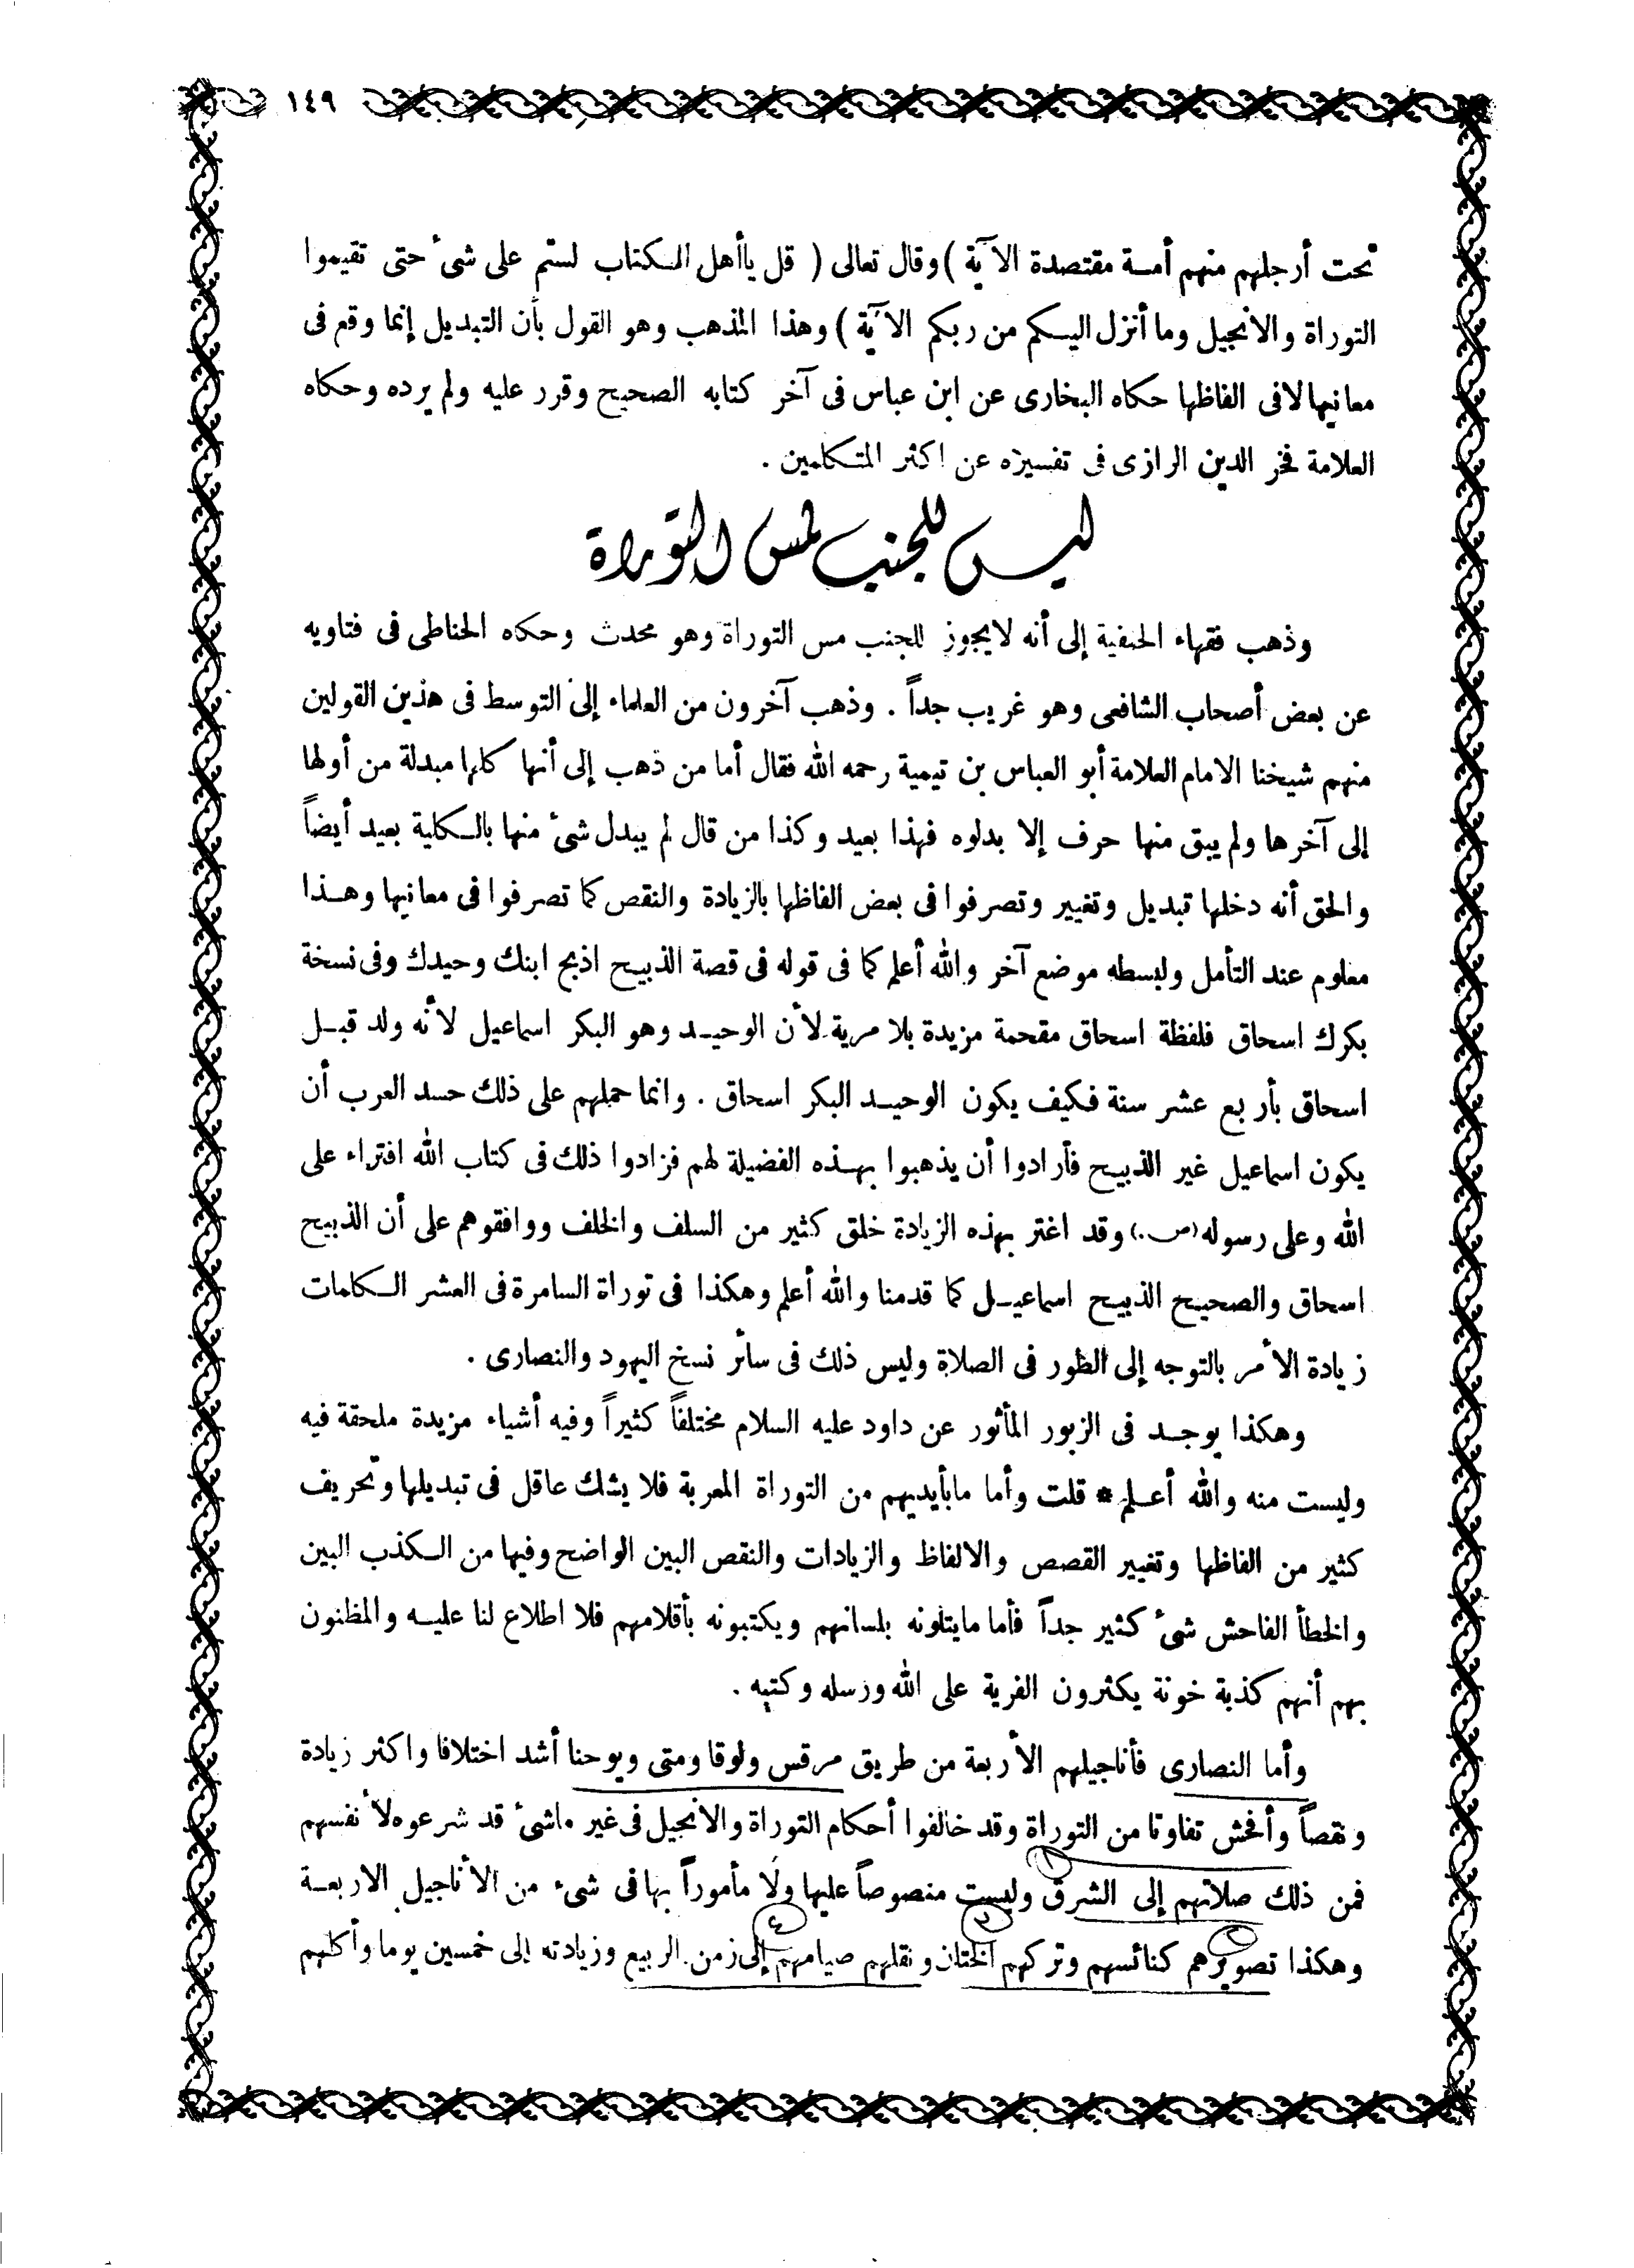 ١٤٩
تحت أرجلهم منهم أمة مقتصدة الآية ) وقال تعالى ( قل يا أهل الكتاب لستم على شئ حتى تقيموا
التوراة والانجيل وما أنزل اليكم من ربكم الآية ) وهذا المذهب وهو القول بأن التبديل إنما وقع فى
معانيها لا فى الفاظها حكاه البخارى عن ابن عباس فى آخر كتابه الصحيح وقرر عليه ولم يرده وحكاه
العلامة فخر الدين الرازى فى تفسيره عن اكثر المتكلمين .
ليس للجنب لمس التوراة
وذهب فقهاء الحنفية إلى أنه لا يجوز للجنب مس التوراة وهو محدث وحكاه الحناطى فى فتاويه
عن بعض أصحاب الشافعى وهو غريب جداً . وذهب آخرون من العلماء إلى التوسط فى هذين القولين
منهم شيخنا الامام العلامة أبو العباس بن تيمية رحمه الله فقال أما من ذهب إلى أنها كلها مبدلة من أولها
إلى آخرها ولم يبق منها حرف إلا بدلوه فهذا بعيد وكذا من قال لم يبدل شئ منها بالكلية بعيد أيضاً
والحق أنه دخلها تبديل وتغيير وتصرفوا فى بعض الفاظها بالزيادة والنقص كما تصرفوا فى معانيها وهذا
معلوم عند التأمل ولبسطه موضع آخر والله أعلم كما فى قوله فى قصة الذبيح اذبح ابنك وحيدك وفى نسخة
بكرك اسحاق فلفظة اسحاق مقحمة مزيدة بلا مرية لأن الوحيد وهو البكر اسماعيل لأنه ولد قبل
اسحاق بأربع عشر سنة فكيف يكون الوحيد البكر اسحاق . وانما حملهم على ذلك حسد العرب أن
يكون اسماعيل غير الذبيح فأرادوا أن يذهبوا بهذه الفضيلة لهم فزادوا ذلك فى كتاب الله افتراء على
الله وعلى رسوله (ص.) وقد اغتر بهذه الزيادة خلق كثير من السلف والخلف ووافقوهم على أن الذبيح
اسحاق والصحيح الذبيح اسماعيل كما قدمنا والله أعلم وهكذا فى توراة السامرة فى العشر الكلمات
زيادة الأمر بالتوجه إلى الطور فى الصلاة وليس ذلك فى سائر نسخ اليهود والنصارى .
وهكذا يوجد فى الزبور المأثور عن داود عليه السلام مختلفاً كثيراً وفيه أشياء مزيدة ملحقة فيه
وليست منه والله أعلم * قلت وأما ما بأيديهم من التوراة المعربة فلا يشك عاقل فى تبديلها وتحريف
كثير من الفاظها وتغيير القصص والالفاظ والزيادات والنقص البين الواضح وفيها من الكذب البين
والخطأ الفاحش شئ كثير جداً فأما ما يتلونه بلسانهم ويكتبونه بأقلامهم فلا اطلاع لنا عليه والمظنون
بهم أنهم كذبة خونة يكثرون الفرية على الله ورسله وكتبه .
وأما النصارى فأناجيلهم الأربعة من طريق مرقس ولوقا ومتى ويوحنا أشد اختلافا واكثر زيادة
ونقصاً وأفحش تفاوتا من التوراة وقد خالفوا أحكام التوراة والانجيل فى غير ما شئ قد شرعوه لأنفسهم
فمن ذلك صلاتهم إلى الشرق وليست منصوصاً عليها ولا مأموراً بها فى شىء من الأناجيل الاربعة
وهكذا تصويرهم كنائسهم وتركهم الختان ونقلهم صيامهم إلى زمن الربيع وزيادته إلى خمسين يوما وأكلهم